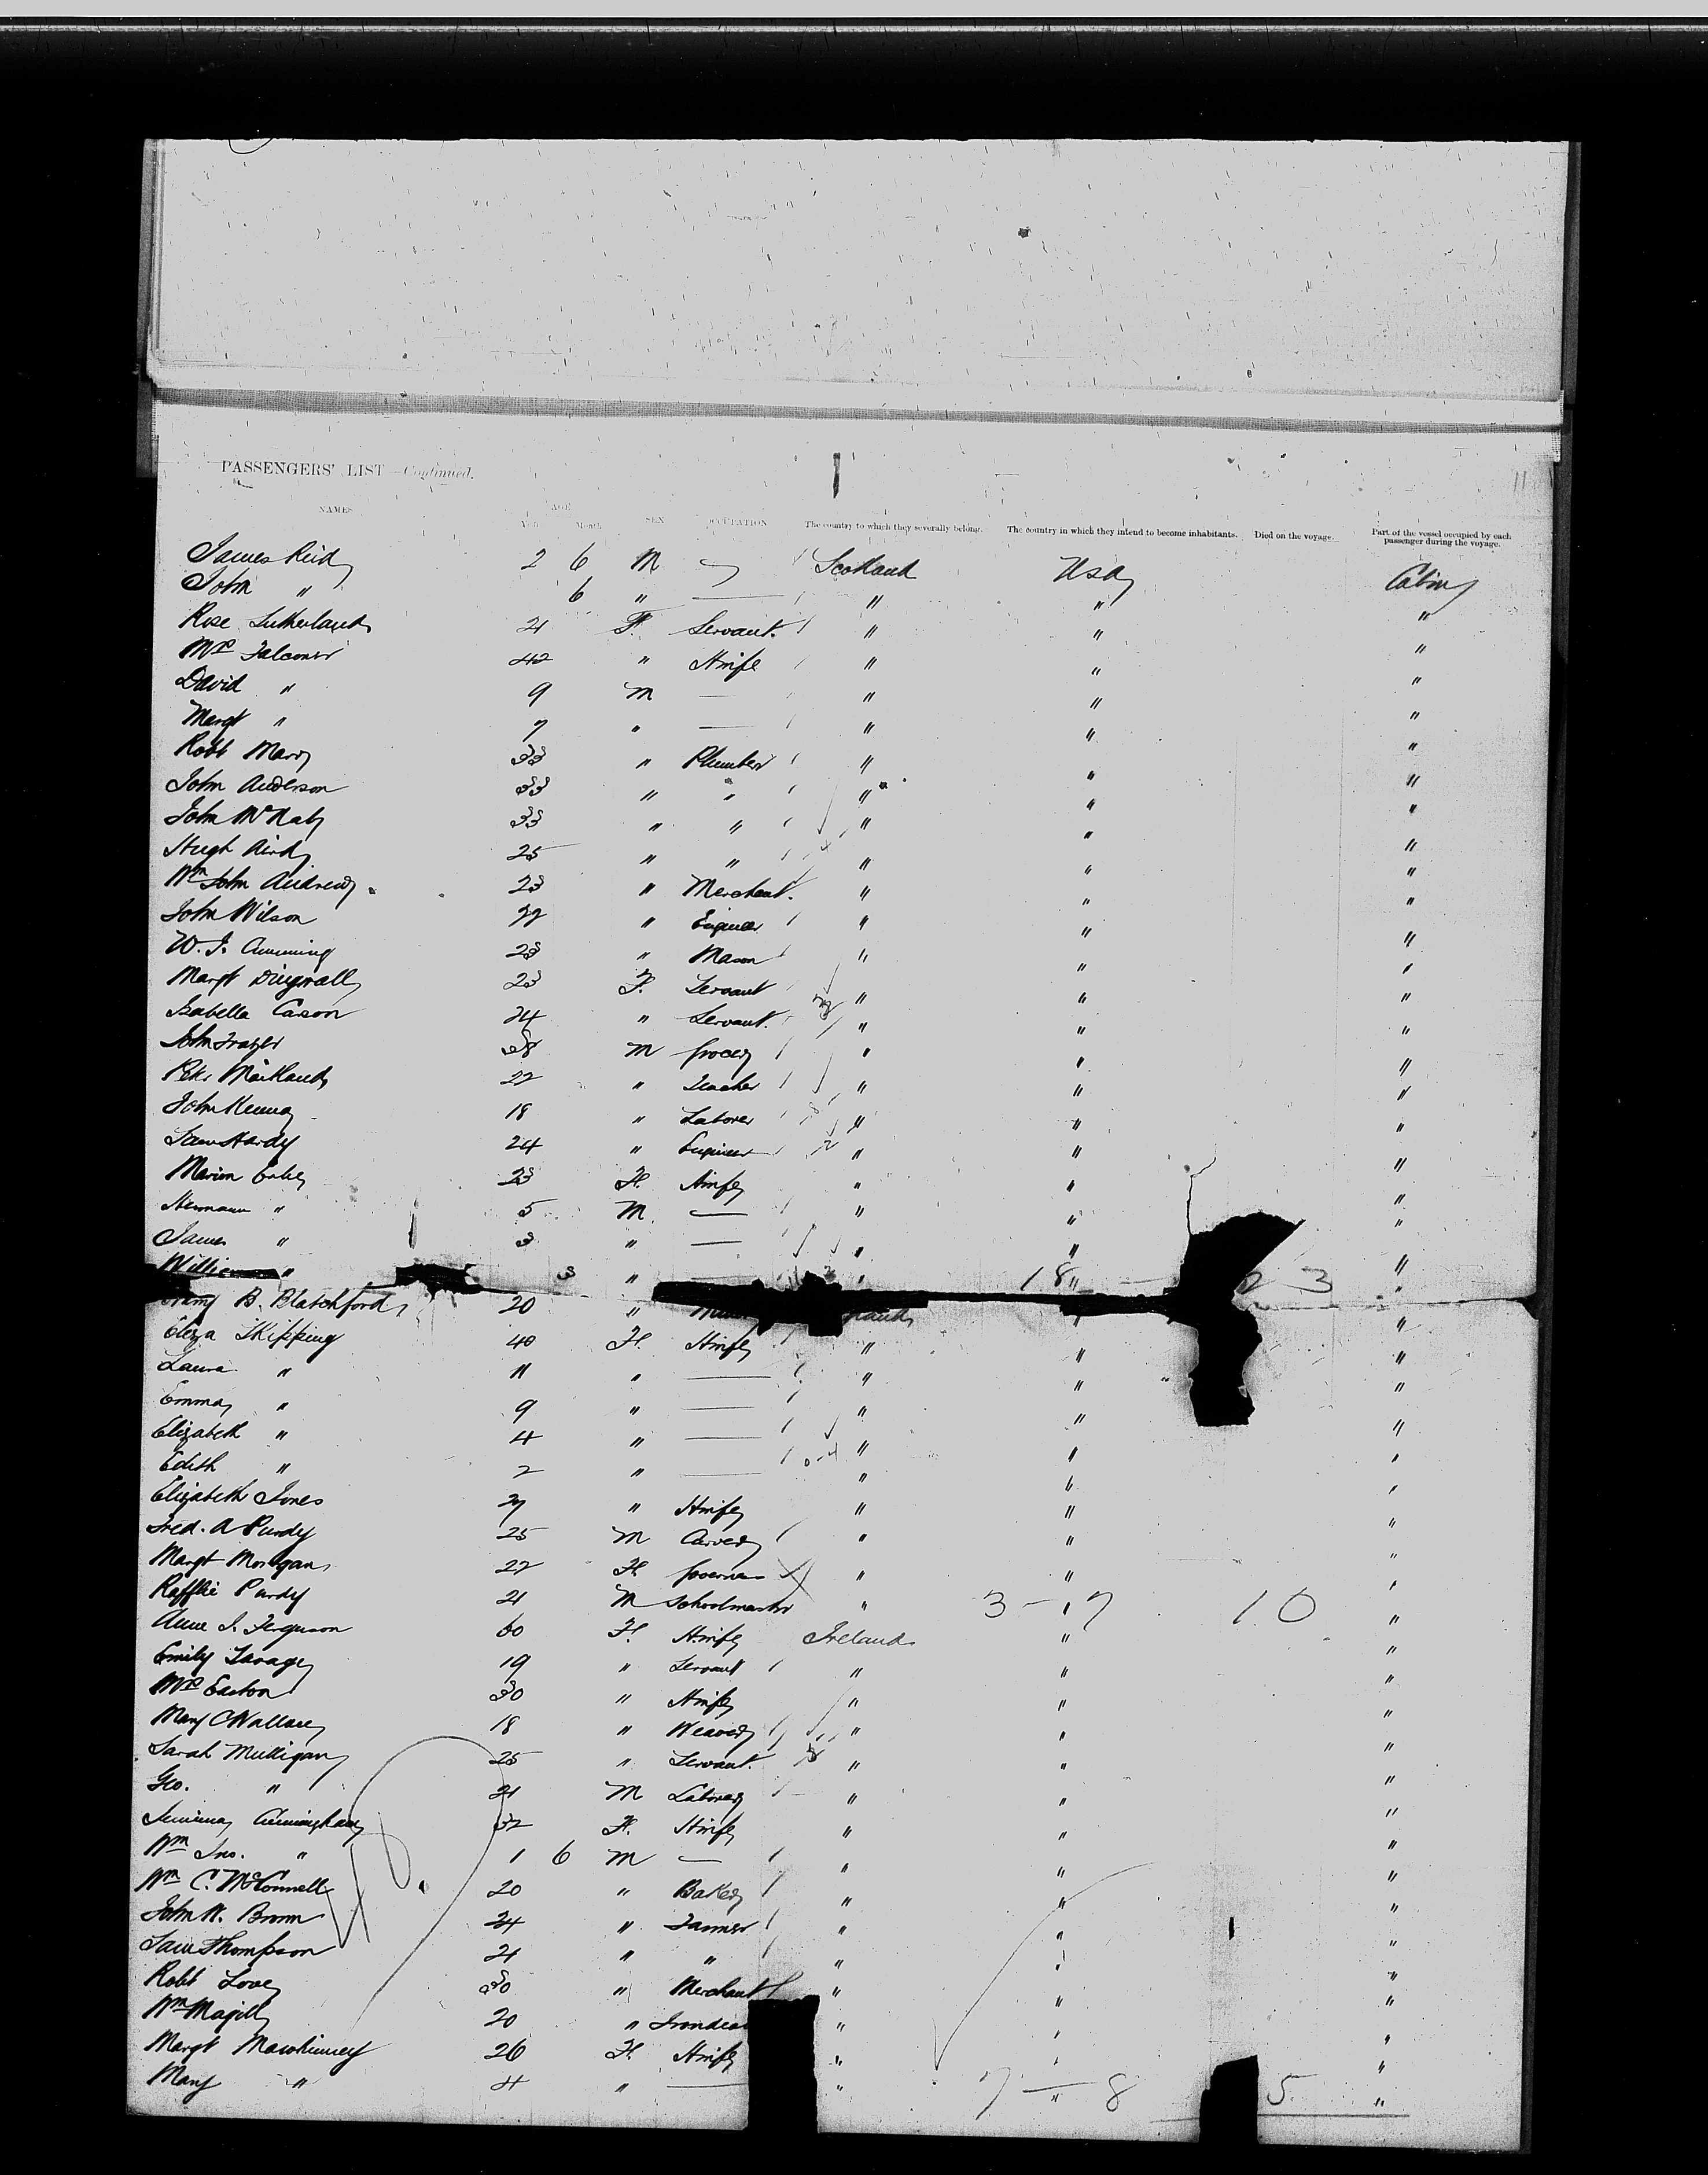 11
PASSENGERS' LIST—Continued.
NAMES AGE SEX OCCUPATION The country to which they severally belong. The country in which they intend to become inhabitants. Died on the voyage. Part of the vessel occupied by each passenger during the voyage.
Month
James Reid 2 6 M Scotland USA Cabin
John " 6 " — " " "
Rose Sutherland 21 F. Servant. " " "
Mrs Falconer 42 " Hwife " " "
David " 9 M — " " "
Margt " 7 " — " " "
Robt 33 " Plumber " " "
John Anderson 33 " " " " "
John McNab 33 " " " " "
Hugh Aird 25 " " " " "
Wm John Andrew 23 " Merchant. " " "
John Wilson 22 " Engineer " " "
W. J. Cumming 23 " Mason " " "
Margt Dingwall 23 F. Servant " " "
Isabella Carson 24 " Servant. " " "
John Frazer 38 M Grocer " " "
Peter Maitland 22 " Teacher " " "
John Kenna 18 " Laborer " " "
Sam Hardy 24 " Engineer " " "
Marion 23 F. Hwife " " "
Hermann " 5 M. — " " "
James " 3 " — " " "
" 3 " — " 18 " — 23 "
B. Blatchford 20 " "
Eliza Skipping 40 F. Hwife " " "
Laura " 11 " — " " "
Emma " 9 " — " " "
Elizabeth " 4 " — " " "
Edith " 2 " — " " "
Elizabeth Jones 27 " Hwife " " "
Fred. A Purdy 25 M Carver " " "
Margt Morgan 22 F. Governess " " "
Purdy 21 M Schoolmaster " 3 — " 7 10 "
Anne J. Ferguson 60 F. Hwife Ireland " "
Emily Savage 19 " Servant " " "
Mrs Easton 30 " Hwife " " "
Mary C Wallace 18 " Weaver " " "
Sarah Mulligan 25 " Servant. " " "
Geo. " 21 M Laborer " " "
Jemima Cunningham 32 F. Hwife " " "
Wm Jno. " 1 6 M — " " "
Wm C. McConnell 20 " Baker " " "
John W. Brown 24 " Farmer " " "
Sam Thompson 21 " " " " "
Robt Love 30 " Merchant " " "
Wm Magill 20 " Irondea " " "
Margt Mawhinney 26 F. Hwife " " "
Mary " 4 " — " 7 — " 8 5 "